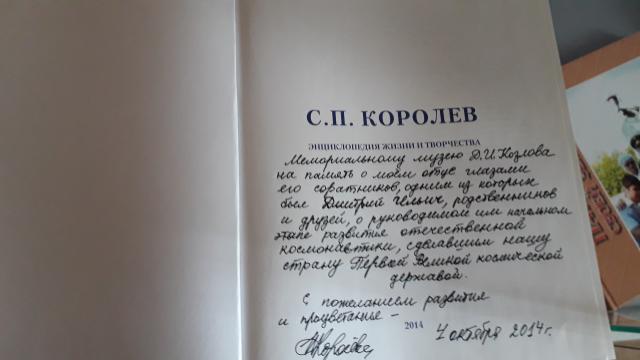 С.П. КОРОЛЕВ
ЭНЦИКЛОПЕДИЯ ЖИЗНИ И ТВОРЧЕСТВА
Мемориальному музею Д.И. Козлова
на память о моём отце глазами
его соратников, одним из которых
был Дмитрий Ильич, родственников
и друзей, о руководимом им начальном
этапе развития отечественной
космонавтики, сделавшим нашу
страну Первой Великой космической
державой.
С пожеланием развития
и процветания –
2014
4 октября 2014 г.